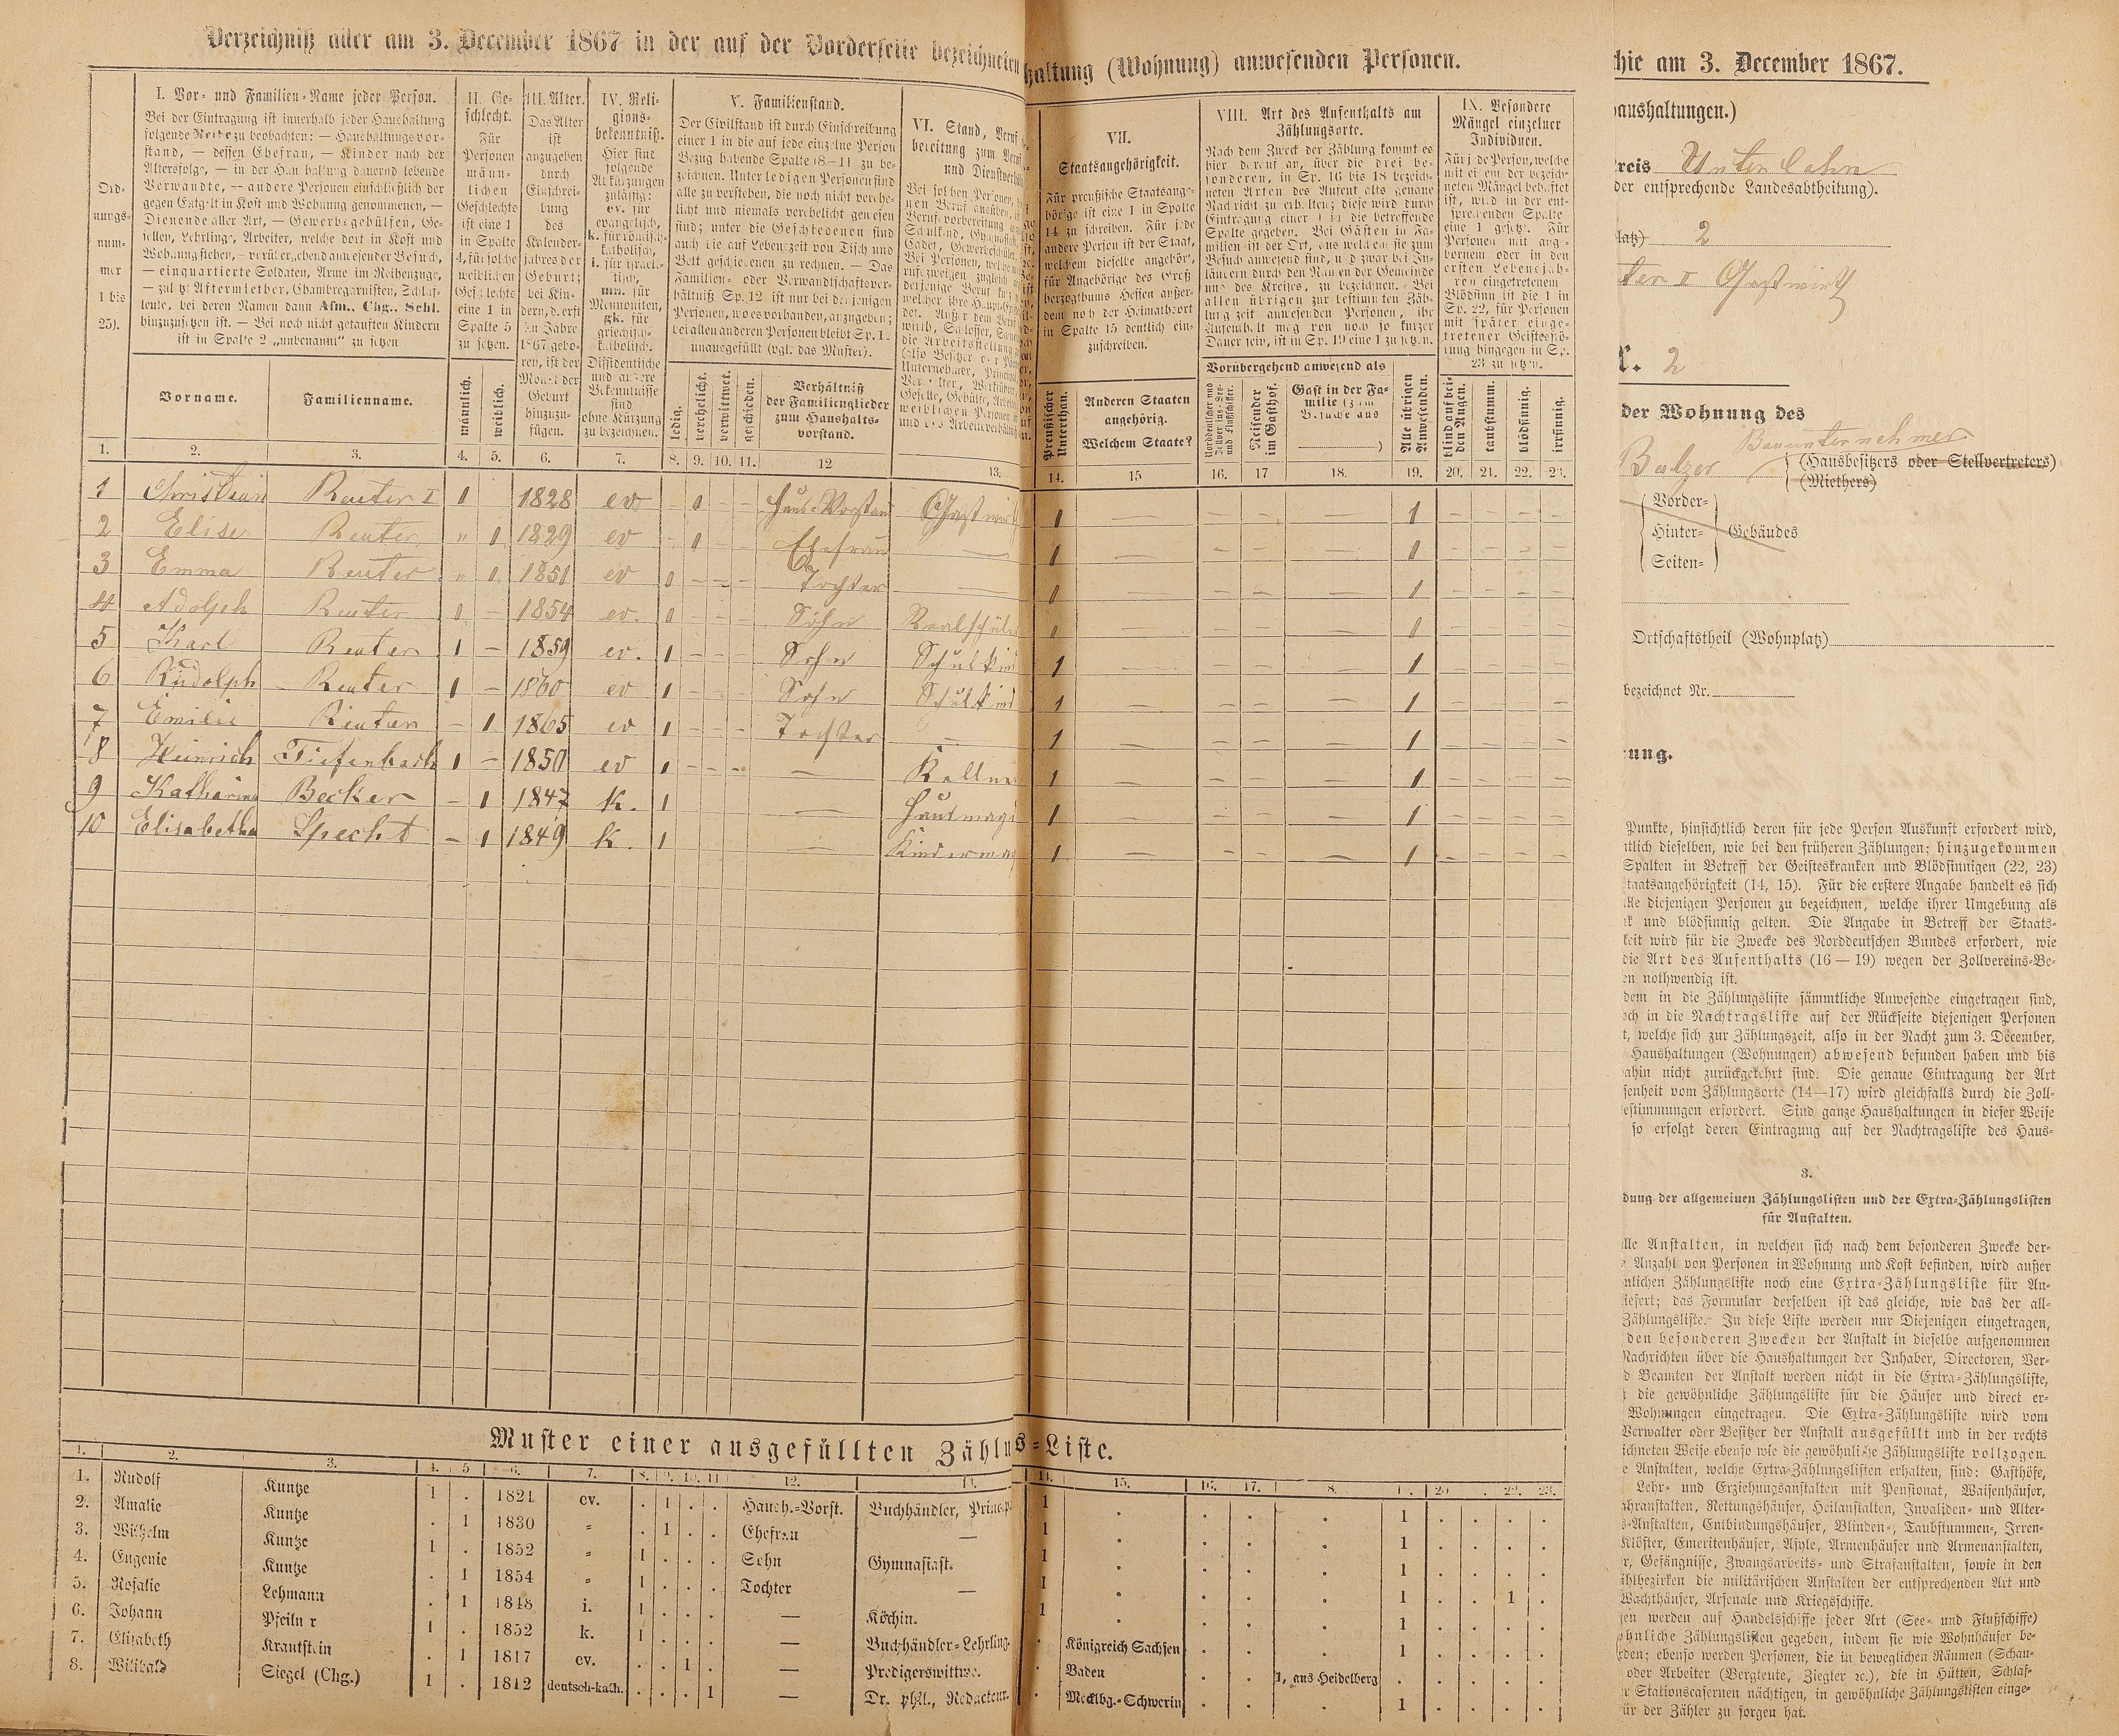 Verzeichniß aller am 3. December 1867 in der auf der Vorderseite bezeichneten haltung (Wohnung) anwesenden Personen.
Ord-
nungs-
num-
mer
1 bis
25).
I. Vor- und Familien-Name jeder Person.
Bei der Eintragung ist innerhalb jeder Haushaltung
folgende Reihe zu beobachten: — Haushaltungsvor-
stand, — dessen Ehefrau, — Kinder nach der
Altersfolge, — in der Haushaltung dauernd lebende
Verwandte, — andere Personen einschließlich der
gegen Entgelt in Kost und Wohnung genommenen, —
Dienende aller Art, — Gewerbsgehülfen, Ge-
sellen, Lehrlinge, Arbeiter, welche dort in Kost und
Wohnung stehen, — vorübergehend anwesender Besuch,
— einquartierte Soldaten, Arme im Reihenzuge,
— zuletzt Aftermiether, Chambregarnisten, Schlaf-
leute, bei deren Namen dann Afm., Chg., Schl.
hinzuzusetzen ist. — Bei noch nicht getauften Kindern
ist in Spalte 2 „unbenannt" zu setzen
Vorname.
Familienname.
II. Ge-
schlecht.
Für
Personen
männ-
lichen
Geschlechts
ist eine 1
in Spalte
4, für solche
weiblichen
Geschlechts
eine 1 in
Spalte 5
zu setzen.
männlich.
weiblich.
III. Alter.
Das Alter
ist
anzugeben
durch
Einschrei-
bung
des
Kalender-
jahres der
Geburt;
bei Kin-
dern, d. erst
im Jahre
1867 gebo-
ren, ist der
Monat der
Geburt
hinzuzu-
fügen.
IV. Reli-
gions-
bekenntniß.
Hier sind
folgende
Abkürzungen
zulässig:
ev. für
evangelisch,
k. für römisch-
katholisch,
i. für israeli-
tisch,
mn. für
Mennoniten,
gk. für
griechisch-
katholisch.
Dissidentische
und andere
Bekenntnisse
sind
ohne Kürzung
zu bezeichnen.
V. Familienstand.
Der Civilstand ist durch Einschreibung
einer 1 in die auf jede einzelne Person
Bezug habende Spalte (8—11) zu be-
zeichnen. Unter ledigen Personen sind
alle zu verstehen, die noch nicht verehe-
licht und niemals verehelicht gewesen
sind; unter die Geschiedenen sind
auch die auf Lebenszeit von Tisch und
Bett geschiedenen zu rechnen. — Das
Familien- oder Verwandtschaftsver-
hältniß Sp. 12 ist nur bei denjenigen
Personen, wo es vorhanden, anzugeben;
bei allen anderen Personen bleibt Sp. 12
unausgefüllt (vgl. das Muster).
ledig.
verehelicht.
verwittwet.
geschieden.
Verhältniß
der Familienglieder
zum Haushalts-
vorstand.
VI. Stand, Beruf
VII.
Staatsangehörigkeit.
Für preußische Staatsange-
hörige ist eine 1 in Spalte
14 zu schreiben. Für jede
andere Person ist der Staat,
welchem dieselbe angehört,
für Angehörige des Groß-
herzogthums Hessen außer-
dem noch der Heimathsort
in Spalte 15 deutlich ein-
zuschreiben.
Preußischer
Unterthan.
Anderen Staaten
angehörig.
Welchem Staate?
VIII. Art des Aufenthalts am
Zählungsorte.
Nach dem Zweck der Zählung kommt es
hier darauf an, über die drei be-
sonderen, in Sp. 16 bis 18 bezeich-
neten Arten des Aufenthalts genaue
Nachricht zu erhalten; diese wird durch
Eintragung einer 1 in die betreffende
Spalte gegeben. Bei Gästen in Fa-
milien ist der Ort, aus welchem sie zum
Besuch anwesend sind, und zwar bei In-
ländern durch den Namen der Gemeinde
und des Kreises, zu bezeichnen. — Bei
allen übrigen zur bestimmten Zäh-
lungszeit anwesenden Personen, ihr
Aufenthalt mag von noch so kurzer
Dauer sein, ist in Sp. 19 eine 1 zu setzen.
Vorübergehend anwesend als
Reisender
im Gasthof.
Gast in der Fa-
milie (zum
Besuche aus
)
Alle übrigen
Anwesenden.
IX. Besondere
Mängel einzelner
Individuen.
Für jede Person, welche
mit einem der bezeich-
neten Mängel behaftet
ist, wird in der ent-
sprechenden Spalte
eine 1 gesetzt. Für
Personen mit ange-
bornem oder in den
ersten Lebensjah-
ren eingetretenem
Blödsinn ist die 1 in
Sp. 22, für Personen
mit später einge-
tretener Geistesstö-
rung hingegen in Sp.
23 zu setzen.
blind auf bei-
den Augen.
taubstumm.
blödsinnig.
irrsinnig.
1. 2. 3. 4. 5. 6. 7. 8. 9. 10. 11. 12 13. 14. 15 16. 17 18. 19. 20. 21. 22. 23.
1 Christian Reuter I 1 1828 ev 1 - - Haus-Vorstand Gastwirth 1 — - - — 1 - - - -
2 Elise Reuter " 1 1829 ev - 1 - - Ehefrau — 1 — - - — 1 - - - -
3 Emma Reuter " 1 1851 ev 1 - - - Tochter — 1 — - - — 1 - - - -
4 Adolph Reuter 1 - 1854 ev. 1 - - - Sohn Realschüler 1 — - - — 1 - - - -
5 Karl Reuter 1 - 1859 ev. 1 - - - Sohn Schulkind 1 — - - — 1 - - - -
6 Rudolph Reuter 1 - 1860 ev 1 - - - Sohn Schulkind 1 — - - — 1 - - - -
7 Emilie Reuter - 1 1865 ev 1 - - - Tochter — 1 — - - — 1 - - - -
8 Heinrich Tiefenbach 1 - 1850 ev 1 - - - — Kellner 1 — - - — 1 - - - -
9 Katharina Becker - 1 1847 k. 1 — Hausmagd 1 — - - — 1 - - - -
10 Elisabetha Specht - 1 1849 k. 1 — Kindermag 1 — - - — 1 - - - -
Muster einer ausgefüllten Zählu s-Liste.
1. 2. 3. 4. 5 6. 7. 8. 9. 10. 11 12. 13. 14. 15. 16. 17. 8. 1 . 20 22. 23.
1. Rudolf Kuntze 1 . 1821 ev. . 1 . . Haush.-Vorst. Buchhändler, Princip 1 . . . . 1 . . . .
2. Amalie Kuntze . 1 1830 " . 1 . . Ehefrau — 1 . . . . 1 . . . .
3. Wilhelm Kuntze 1 . 1852 " 1 . . . Sohn Gymnasiast. 1 . . . . 1 . . . .
4. Eugenie Kuntze . 1 1854 " 1 . . . Tochter — 1 . . . . 1 . . 1 .
5. Rosalie Lehmann . 1 1848 i. 1 . . . — Köchin. 1 . . . . 1 . . . .
6. Johann Pfeiln r 1 . 1852 k. 1 . . . — Buchhändler-Lehrling. . Königreich Sachsen . . . 1 . . . .
7. Elisabeth Krautstein . 1 1817 ev. . . 1 . — Predigerswittwe. . Baden . . 1, aus Heidelberg . . . . .
8. Wilibald Siegel (Chg.) 1 . 1812 deutsch-kath. . . . 1 — Dr. phil., Redacteur. . Mecklbg.-Schwerin . . . 1 . . . .
hie am 3. December 1867.
haushaltungen.)
reis Unterlahn
der entsprechende Landesabtheilung).
latz) 2
ter I Gastwirth
r. 2
der Wohnung des
Bauunternehmer
Balzer (Hausbesitzers oder Stellvertreters)
(Miethers)
Vorder-
Hinter- Gebäudes
Seiten-
Ortschaftstheil (Wohnplatz)
bezeichnet Nr.
ung.
Punkte, hinsichtlich deren für jede Person Auskunft erfordert wird,
ntlich dieselben, wie bei den früheren Zählungen; hinzugekommen
Spalten in Betreff der Geisteskranken und Blödsinnigen (22, 23)
taatsangehörigkeit (14, 15). Für die erstere Angabe handelt es sich
alle diejenigen Personen zu bezeichnen, welche ihrer Umgebung als
k und blödsinnig gelten. Die Angabe in Betreff der Staats-
keit wird für die Zwecke des Norddeutschen Bundes erfordert, wie
die Art des Aufenthalts (16—19) wegen der Zollvereins-Be-
en nothwendig ist.
dem in die Zählungsliste sämmtliche Anwesende eingetragen sind,
och in die Nachtragsliste auf der Rückseite diejenigen Personen
t, welche sich zur Zählungszeit, also in der Nacht zum 3. December,
Haushaltungen (Wohnungen) abwesend befunden haben und bis
ahin nicht zurückgekehrt sind. Die genaue Eintragung der Art
senheit vom Zählungsorte (14—17) wird gleichfalls durch die Zoll-
estimmungen erfordert. Sind ganze Haushaltungen in dieser Weise
so erfolgt deren Eintragung auf der Nachtragsliste des Haus-
3.
dung der allgemeinen Zählungslisten und der Extra-Zählungslisten
für Anstalten.
alle Anstalten, in welchen sich nach dem besonderen Zwecke der-
e Anzahl von Personen in Wohnung und Kost befinden, wird außer
nlichen Zählungsliste noch eine Extra-Zählungsliste für An-
iefert; das Formular derselben ist das gleiche, wie das der all-
Zählungsliste. In diese Liste werden nur Diejenigen eingetragen,
den besonderen Zwecken der Anstalt in dieselbe aufgenommen
Nachrichten über die Haushaltungen der Inhaber, Directoren, Ver-
d Beamten der Anstalt werden nicht in die Extra-Zählungsliste,
t die gewöhnliche Zählungsliste für die Häuser und direct er-
Wohnungen eingetragen. Die Extra-Zählungsliste wird vom
Verwalter oder Besitzer der Anstalt ausgefüllt und in der rechts
ichneten Weise ebenso wie die gewöhnliche Zählungsliste vollzogen.
e Anstalten, welche Extra-Zählungslisten erhalten, sind: Gasthöfe,
Lehr- und Erziehungsanstalten mit Pensionat, Waisenhäuser,
ahranstalten, Rettungshäuser, Heilanstalten, Invaliden- und Alter-
s-Anstalten, Entbindungshäuser, Blinden-, Taubstummen-, Irren-
Klöster, Emeritenhäuser, Asyle, Armenhäuser und Armenanstalten,
r, Gefängnisse, Zwangsarbeits- und Strafanstalten, sowie in den
ählbezirken die militärischen Anstalten der entsprechenden Art und
Wachthäuser, Arsenale und Kriegsschiffe.
gen werden auf Handelsschiffe jeder Art (See- und Flußschiffe)
öhnliche Zählungslisten gegeben, indem sie wie Wohnhäuser be-
rden; ebenso werden Personen, die in beweglichen Räumen (Schau-
oder Arbeiter (Bergleute, Ziegler ꝛc.), die in Hütten, Schlaf-
r Stationscasernen nächtigen, in gewöhnliche Zählungslisten einge-
ür der Zähler zu sorgen hat.